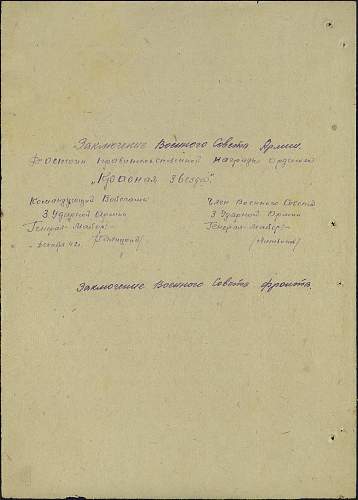 Заключение Военного Совета Армии.
Достоин правительственной награды орденом
„Красная Звезда".
Командующий Войсками
3 Ударной Армии
Генерал-Майор-
декабря 42 г.
Член Военного Совета
3 Ударной Армии
Генерал-Майор-
Заключение Военного Совета фронта.